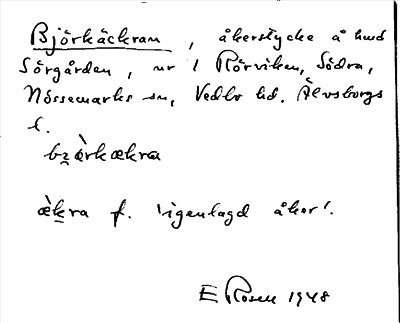 Björkäckran, åkerstycke å hmd
Sörgården, nr 1 Rörviken, Södra,
Nössemarks sn, Vedbo hd. Älvsborgs
l.
bz̤æ̀rkækra
æ̀k̤ra f. 'igenlagd åker'.
E Rosen 1948